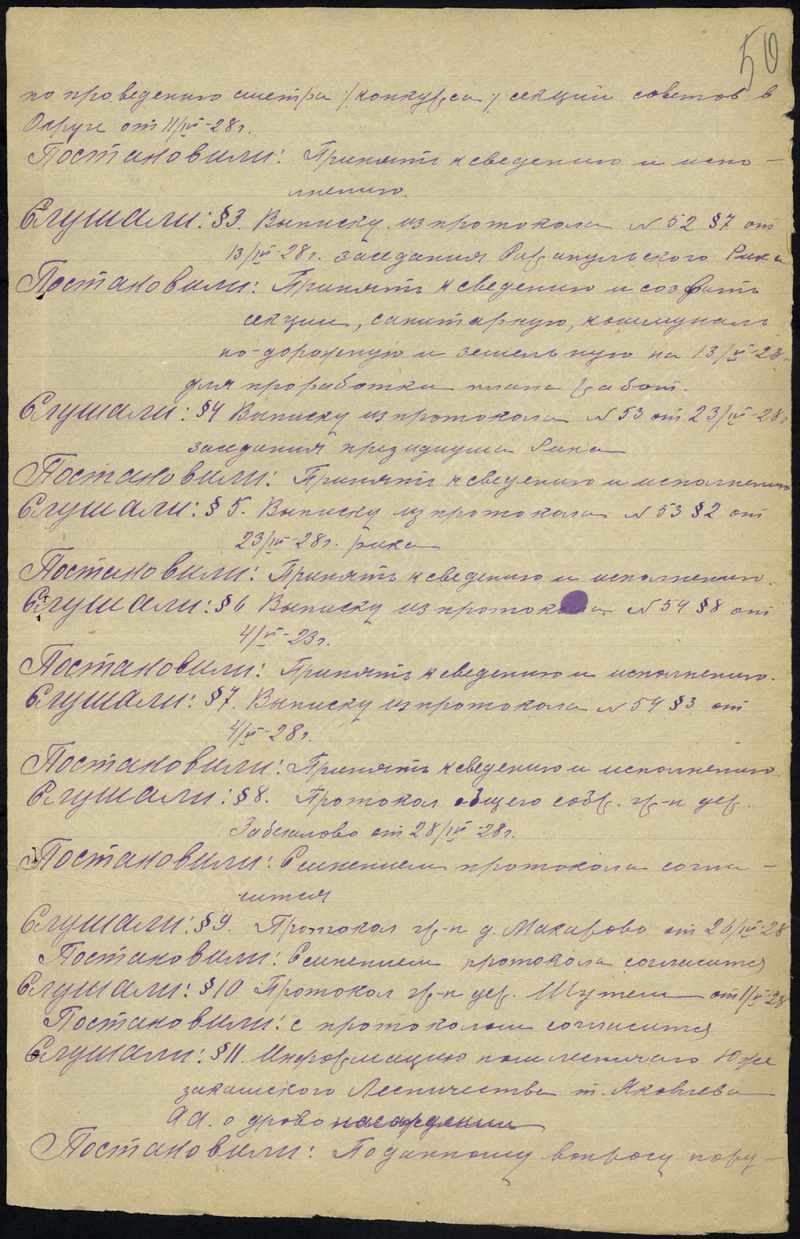 50
по проведению смотра /конкурса/ секции советов в
Округе от 11/IV-28г.
Постановили: Принять к сведению и испо-
лнению.
Слушали: §3. Выписку из протокола N 52 §7 от
13/IV-28г. заседания Рика
Постановили: Принять к сведению и создать
секции, санитарную, коммуналь
но-дорожную и земельную на 13/V-28
для проработки плана работ.
Слушали: §4 Выписку из протокола N 53 от 23/IV-28г
заседания президиума Рика
Постановили: Принять к сведению и исполнению
Слушали: § 5. Выписку из протокола N 53 §2 от
23/IV-28г. рика
Постановили: Принять к сведению и исполнению.
Слушали: §6 Выписку из протокола N 54 §8 от
4/V-23г.
Постановили: Принять к сведению и исполнению.
Слушали: §7. Выписку из протокола N 54 §3 от
4/V-28г.
Постановили: Принять к сведению и исполнению.
Слушали: §8. Протокол общего собр. гр-н дер.
Забегалово от 28/IV-28г.
Постановили: С мнением протокола согла-
сится
Слушали: §9. Протокол гр-н д. Макарово от 26/IV-28
Постановили: С мнением протокола согласится
Слушали: §10 Протокол гр-н дер. от 1/V-28
Постановили: с протоколом согласится
Слушали: §11. Информацию пом лесничего
Лесничества т. Яковлева
АА. о древо насаждении
Постановили: По данному вопросу пору-